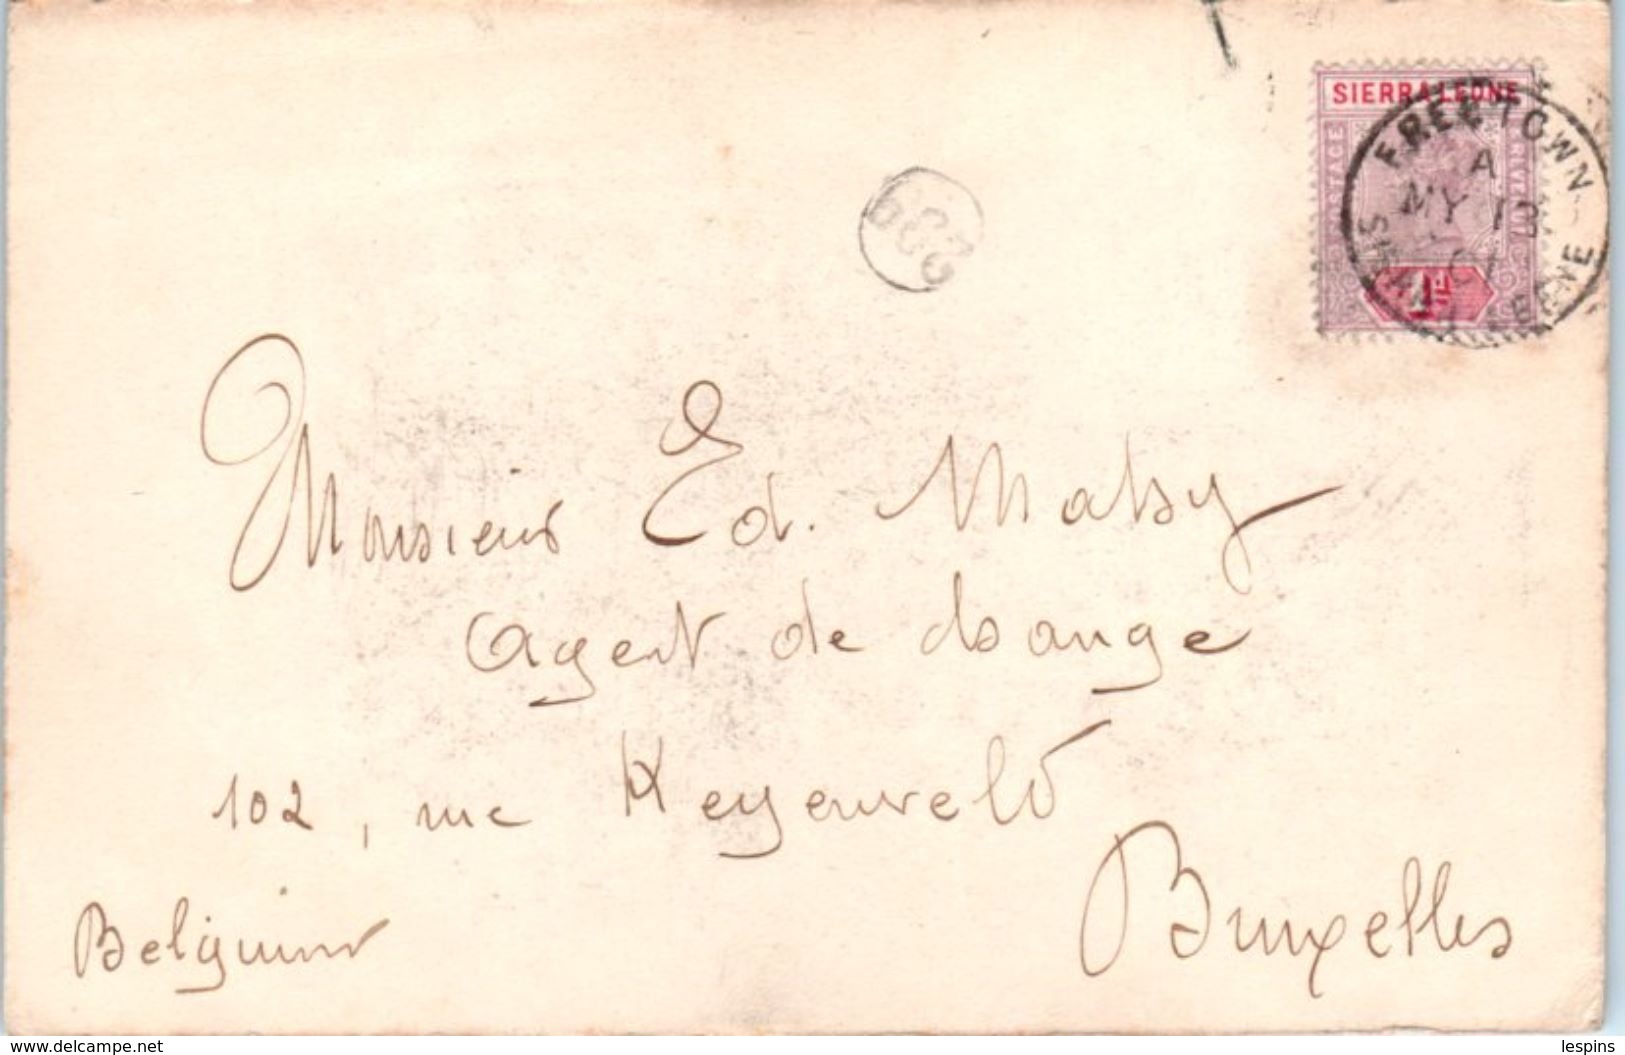 SIERRA LEONE
POSTAGE
REVENUE
1D
FREETOWN
A
MY 13
SIERRA LEONE
209
Monsieur Ed. Mahy
agent de change
102, rue Keyenveld
Bruxelles
Belgium
www.delcampe.net
lespins